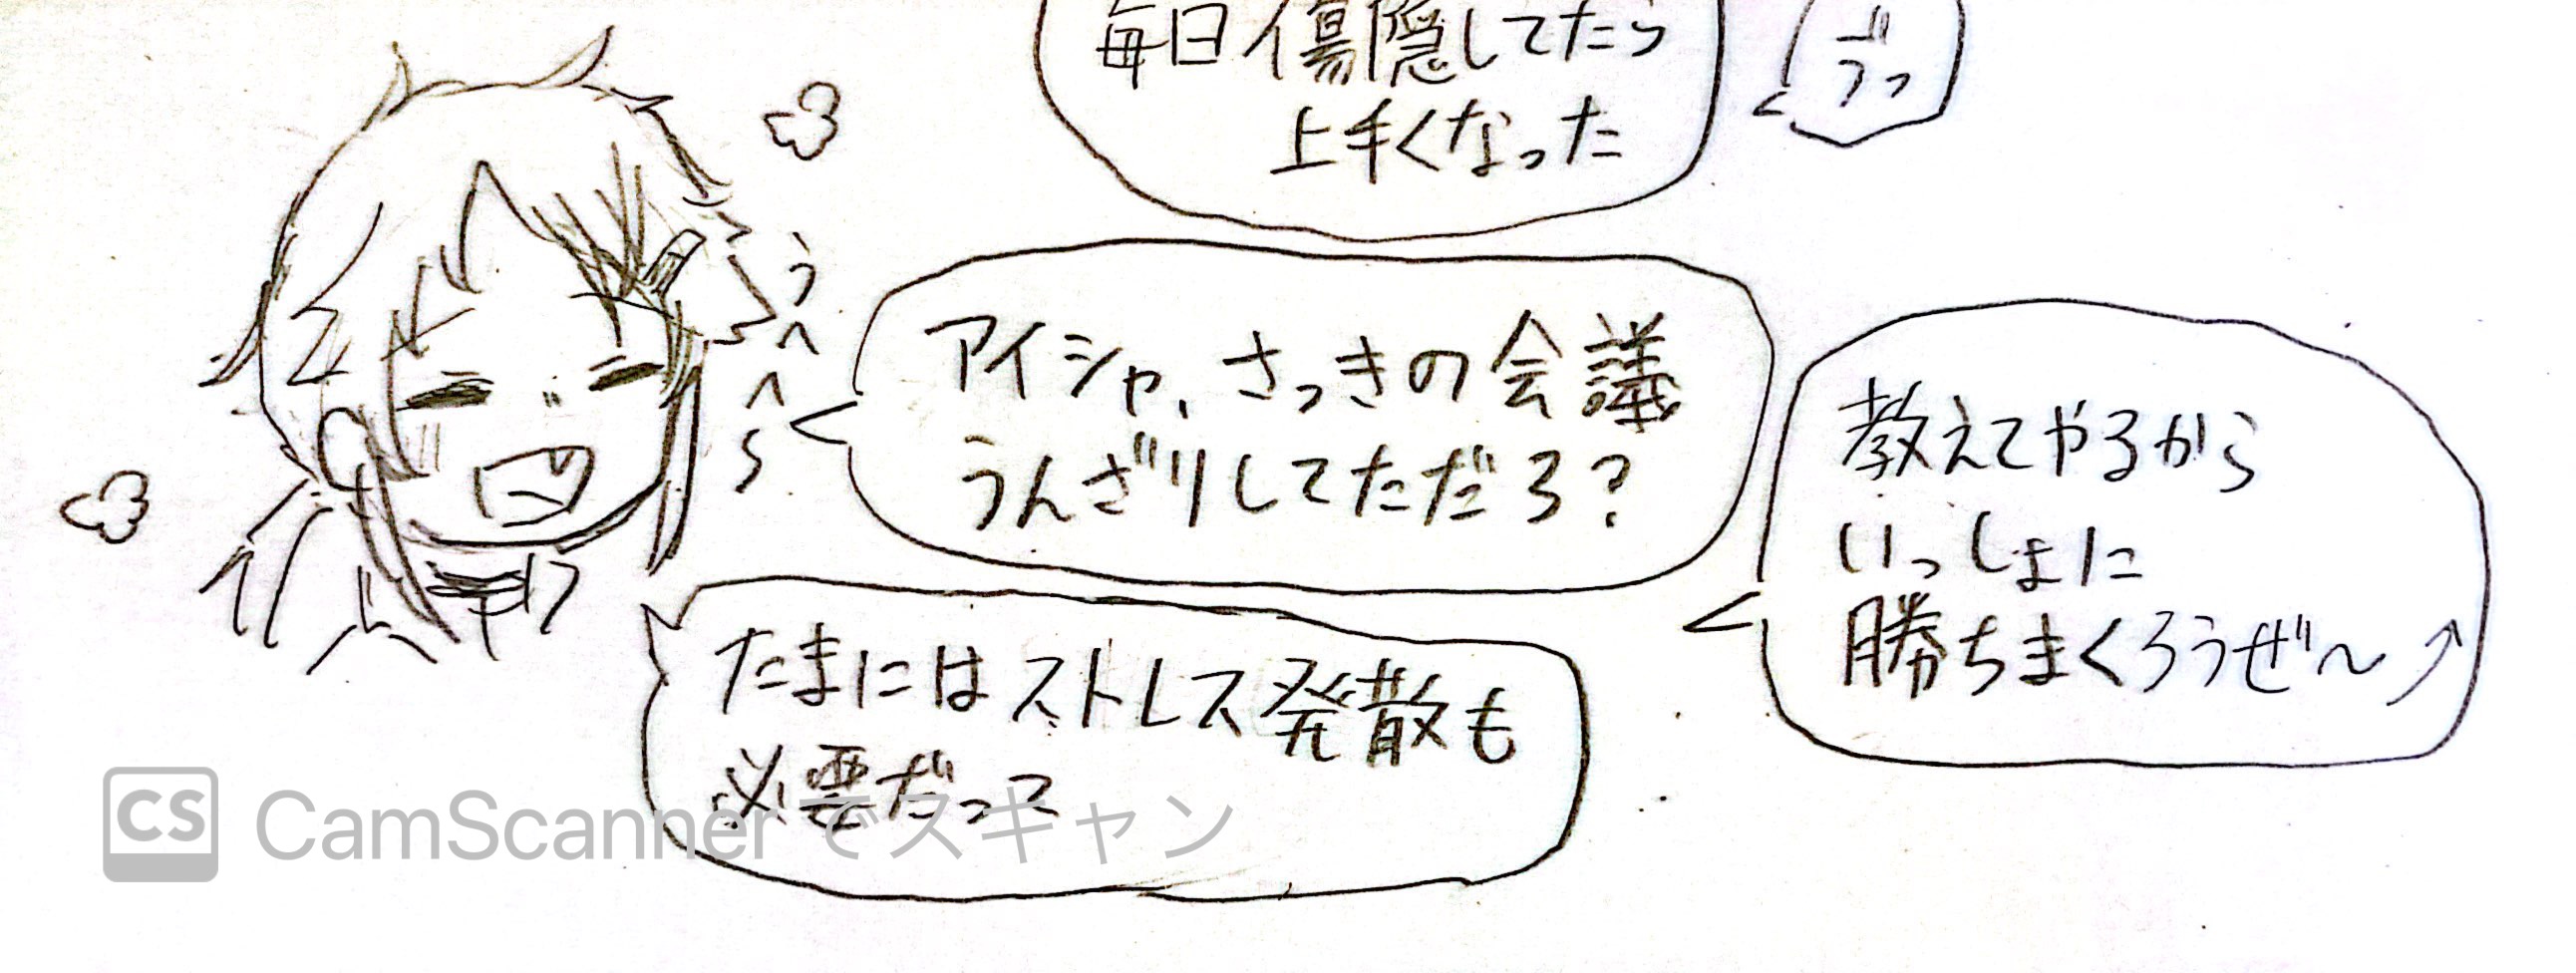 毎日傷隠してたら
上手くなった
うへへ〜
アイシャ、さっきの会議
うんざりしてただろ?
教えてやるから
いっしょに
勝ちまくろうぜ〜↗
たまにはストレス発散も
必要だって
CS CamScannerでスキャン